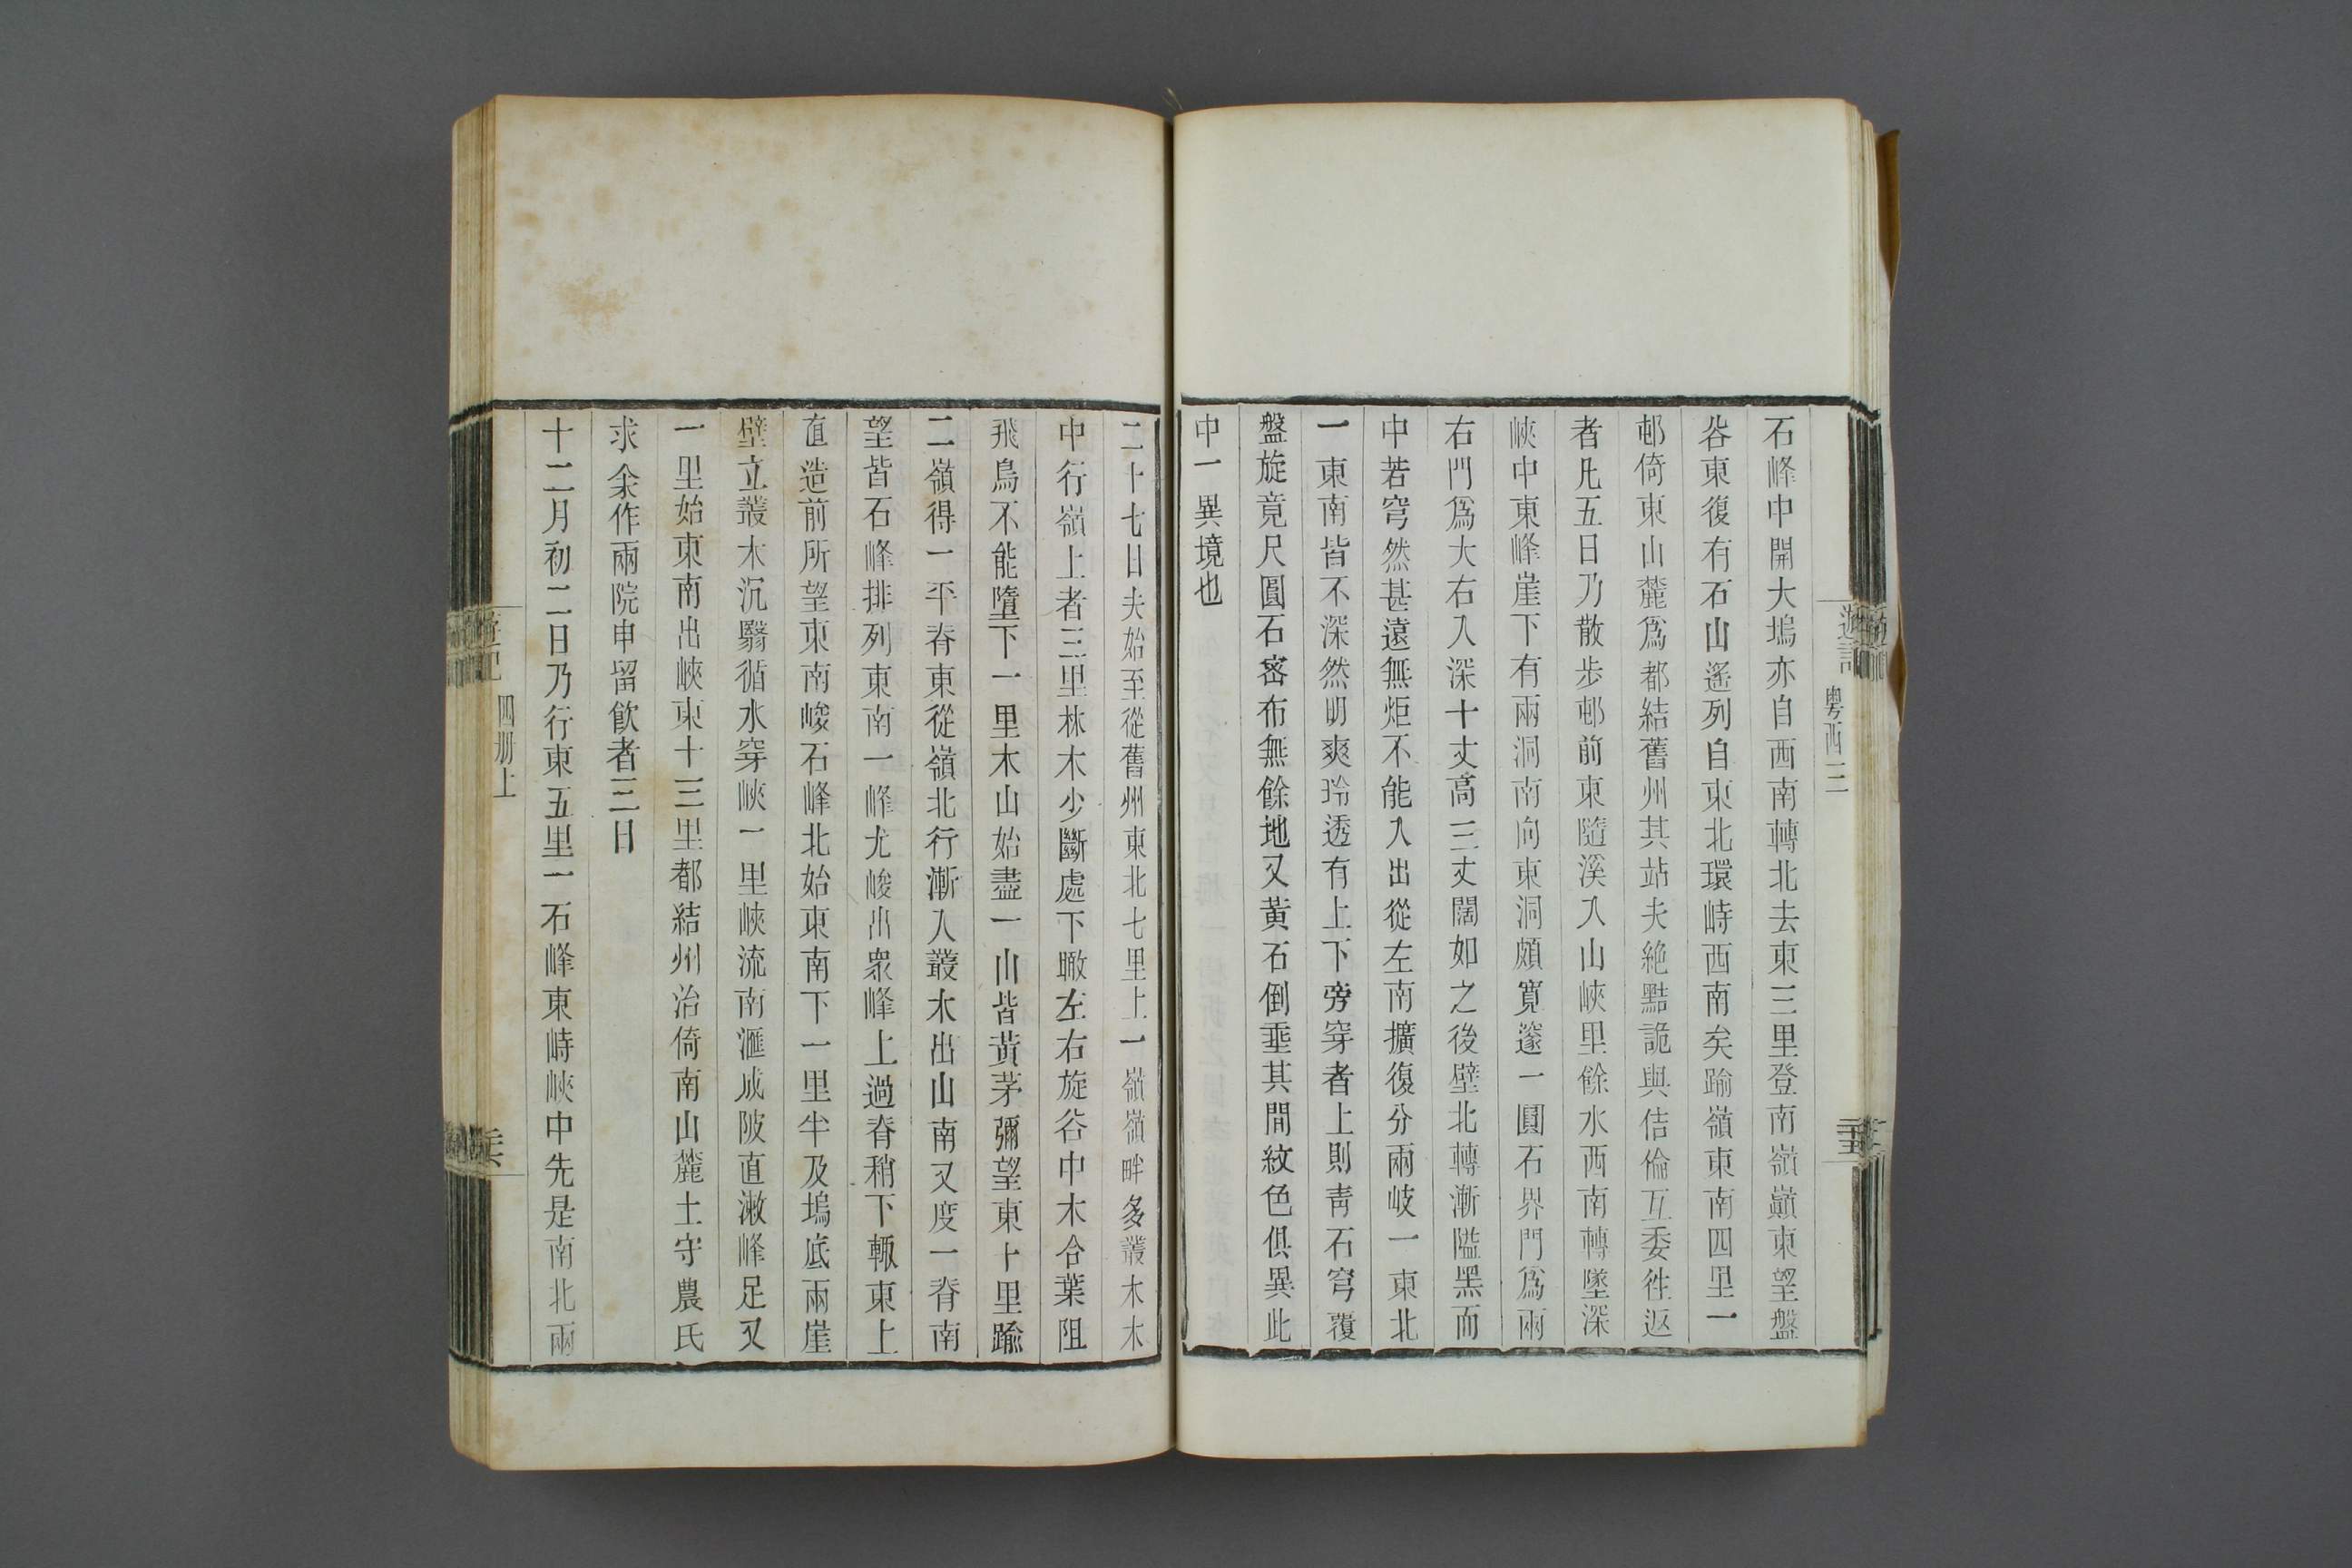 遊記
粵西三
石峰中開大塢亦自西南轉北去東三里登南嶺巔東望盤
谷東復有石山遙列自東北環峙西南矣踰嶺東南四里一
邨倚東山麓爲都結舊州其站夫絶黠詭與佶倫互委徃返
者凡五日乃散步邨前東隨溪入山峽里餘水西南轉墜深
峽中東峰崖下有兩洞南向東洞頗寬邃一圓石界門爲兩
右門爲大右入深十丈高三丈闊如之後壁北轉漸隘黑而
中若穹然甚遠無炬不能入出從左南擴復分兩岐一東北
一東南皆不深然明爽玲透有上下旁穿者上則靑石穹覆
盤旋竟尺圓石宻布無餘地又黃石倒垂其間紋色俱異此
中一異境也
二十七日夫始至從舊州東北七里上一嶺嶺畔多叢木木
中行嶺上者三里林木少斷處下瞰左右旋谷中木合葉阻
飛鳥不能墮下一里木山始盡一山皆黃茅彌望東十里踰
二嶺得一平脊東從嶺北行漸入叢木出山南又度一脊南
望皆石峰排列東南一峰尤峻出衆峰上過脊稍下輙東上
直造前所望東南峻石峰北始東南下一里半及塢底兩崖
壁立叢木沉翳循水穿峽一里峽流南滙成陂直漱峰足又
一里始東南出峽東十三里都結州冶倚南山麓土守農氏
求余作兩院申留飮者三日
十二月初二日乃行東五里一石峰東峙峽中先是南北兩
遊記
四册上